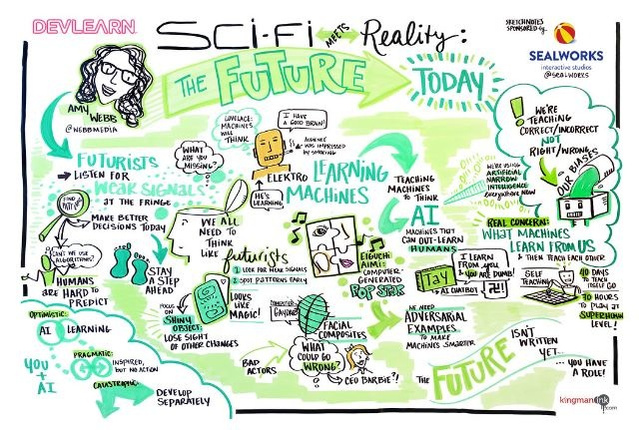 DEVLEARN
SCI-FI MEETS Reality:
THE FUTURE TODAY
SKETCHNOTES
SPONSORED by:
SEALWORKS
interactive studios
@sealworks
AMY
WEBB
@WEBBMEDIA
FUTURISTS
LISTEN FOR
WEAK SIGNALS
AT THE FRINGE
MAKE BETTER
DECISIONS TODAY
HUMANS
ARE HARD to
PREDICT
STAY
A STEP
AHEAD
WHAT
ARE YOU
MISSING?
LOVELACE:
MACHINES
WILL
THINK
I HAVE
A GOOD BRAIN!
AUDIENCE
WAS IMPRESSED
BY SMOKING
ELEKTRO
HE'S
LEARNING
LEARNING
MACHINES
WE ALL
NEED TO
THINK
LIKE futurists
1 LOOK FOR WEAK SIGNALS
2 SPOT PATTERNS EARLY
FOCUS ON
SHINY
OBJECT:
LOSE SIGHT
OF OTHER CHANGES
LOOKS
LIKE
MAGIC!
FACIAL
COMPOSITES
BAD
ACTORS
WHAT
COULD GO
WRONG?
CEO BARBIE?!
COMPUTER-
GENERATED
POP STAR
TEACHING
MACHINES
TO THINK
AI
MACHINES THAT
CAN OUT-LEARN
HUMANS
WE'RE USING
ARTIFICIAL
NARROW
INTELLIGENCE
everywhere NOW
WE'RE
TEACHING
CORRECT/INCORRECT
NOT
RIGHT/WRONG
OUR BIASES
REAL CONCERN:
WHAT MACHINES
LEARN FROM US
THEN TEACH EACH OTHER
Tay
I LEARN
FROM YOU
YOU ARE DUMB!
AS CHATBOT
SELF
TEACHING
40 DAYS
TO TEACH
ITSELF GO
SUPERHUMAN
LEVEL!
WE NEED
ADVERSARIAL
EXAMPLES
TO MAKE
MACHINES SMARTER
OPTIMISTIC:
AI LEARNING
YOU
+
AI
PRAGMATIC:
INSPIRED,
but NO ACTION
CATASTROPHIC
DEVELOP
SEPARATELY
THE FUTURE ISN'T
WRITTEN
YET...
...YOU HAVE
A ROLE!
kingmanink
.com